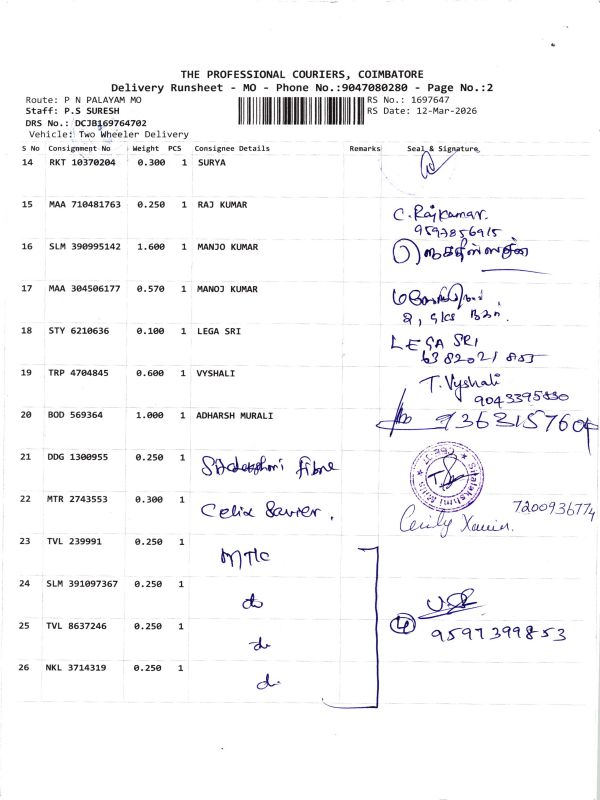 THE PROFESSIONAL COURIERS, COIMBATORE
Delivery Runsheet - MO - Phone No.:9047080280 - Page No.:2
Route: P N PALAYAM MO RS No.: 1697647
Staff: P.S SURESH RS Date: 12-Mar-2026
DRS No.: DCJB169764702
Vehicle: Two Wheeler Delivery
S No Consignment No Weight PCS Consignee Details Remarks Seal & Signature
14 RKT 10370204 0.300 1 SURYA
15 MAA 710481763 0.250 1 RAJ KUMAR C. Rajkumar.
9597856915
16 SLM 390995142 1.600 1 MANJO KUMAR
17 MAA 304506177 0.570 1 MANOJ KUMAR
18 STY 6210636 0.100 1 LEGA SRI LEGA SRI
6382021855
19 TRP 4704845 0.600 1 VYSHALI T. Vyshali
9043395830
20 BOD 569364 1.000 1 ADHARSH MURALI
21 DDG 1300955 0.250 1 Fibre
22 MTR 2743553 0.300 1 Celix Savier. Cecily Xavier. 7200936774
23 TVL 239991 0.250 1 MTC
24 SLM 391097367 0.250 1 do
25 TVL 8637246 0.250 1 do 4 9597399853
26 NKL 3714319 0.250 1 do